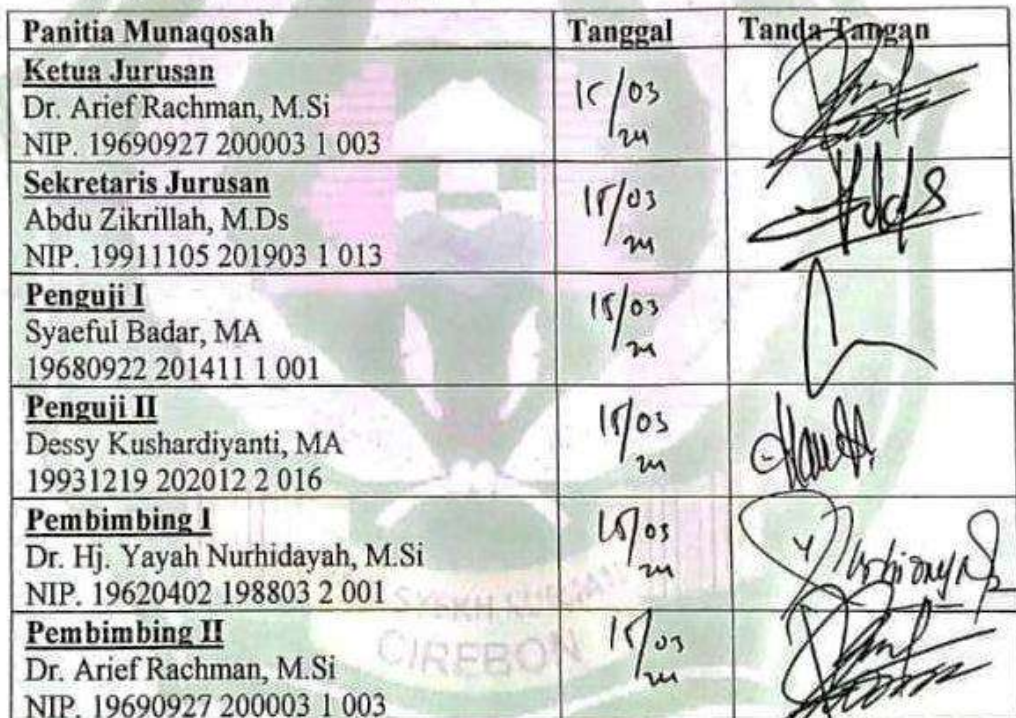 Panitia Munaqosah Tanggal Tanda Tangan
Ketua Jurusan
Dr. Arief Rachman, M.Si
NIP. 19690927 200003 1 003
15/03
24
Sekretaris Jurusan
Abdu Zikrillah, M.Ds
NIP. 19911105 201903 1 013
15/03
24
Penguji I
Syaeful Badar, MA
19680922 201411 1 001
15/03
24
Penguji II
Dessy Kushardiyanti, MA
19931219 202012 2 016
15/03
24
Pembimbing I
Dr. Hj. Yayah Nurhidayah, M.Si
NIP. 19620402 198803 2 001
15/03
24
Pembimbing II
Dr. Arief Rachman, M.Si
NIP. 19690927 200003 1 003
15/03
24
CIREBON